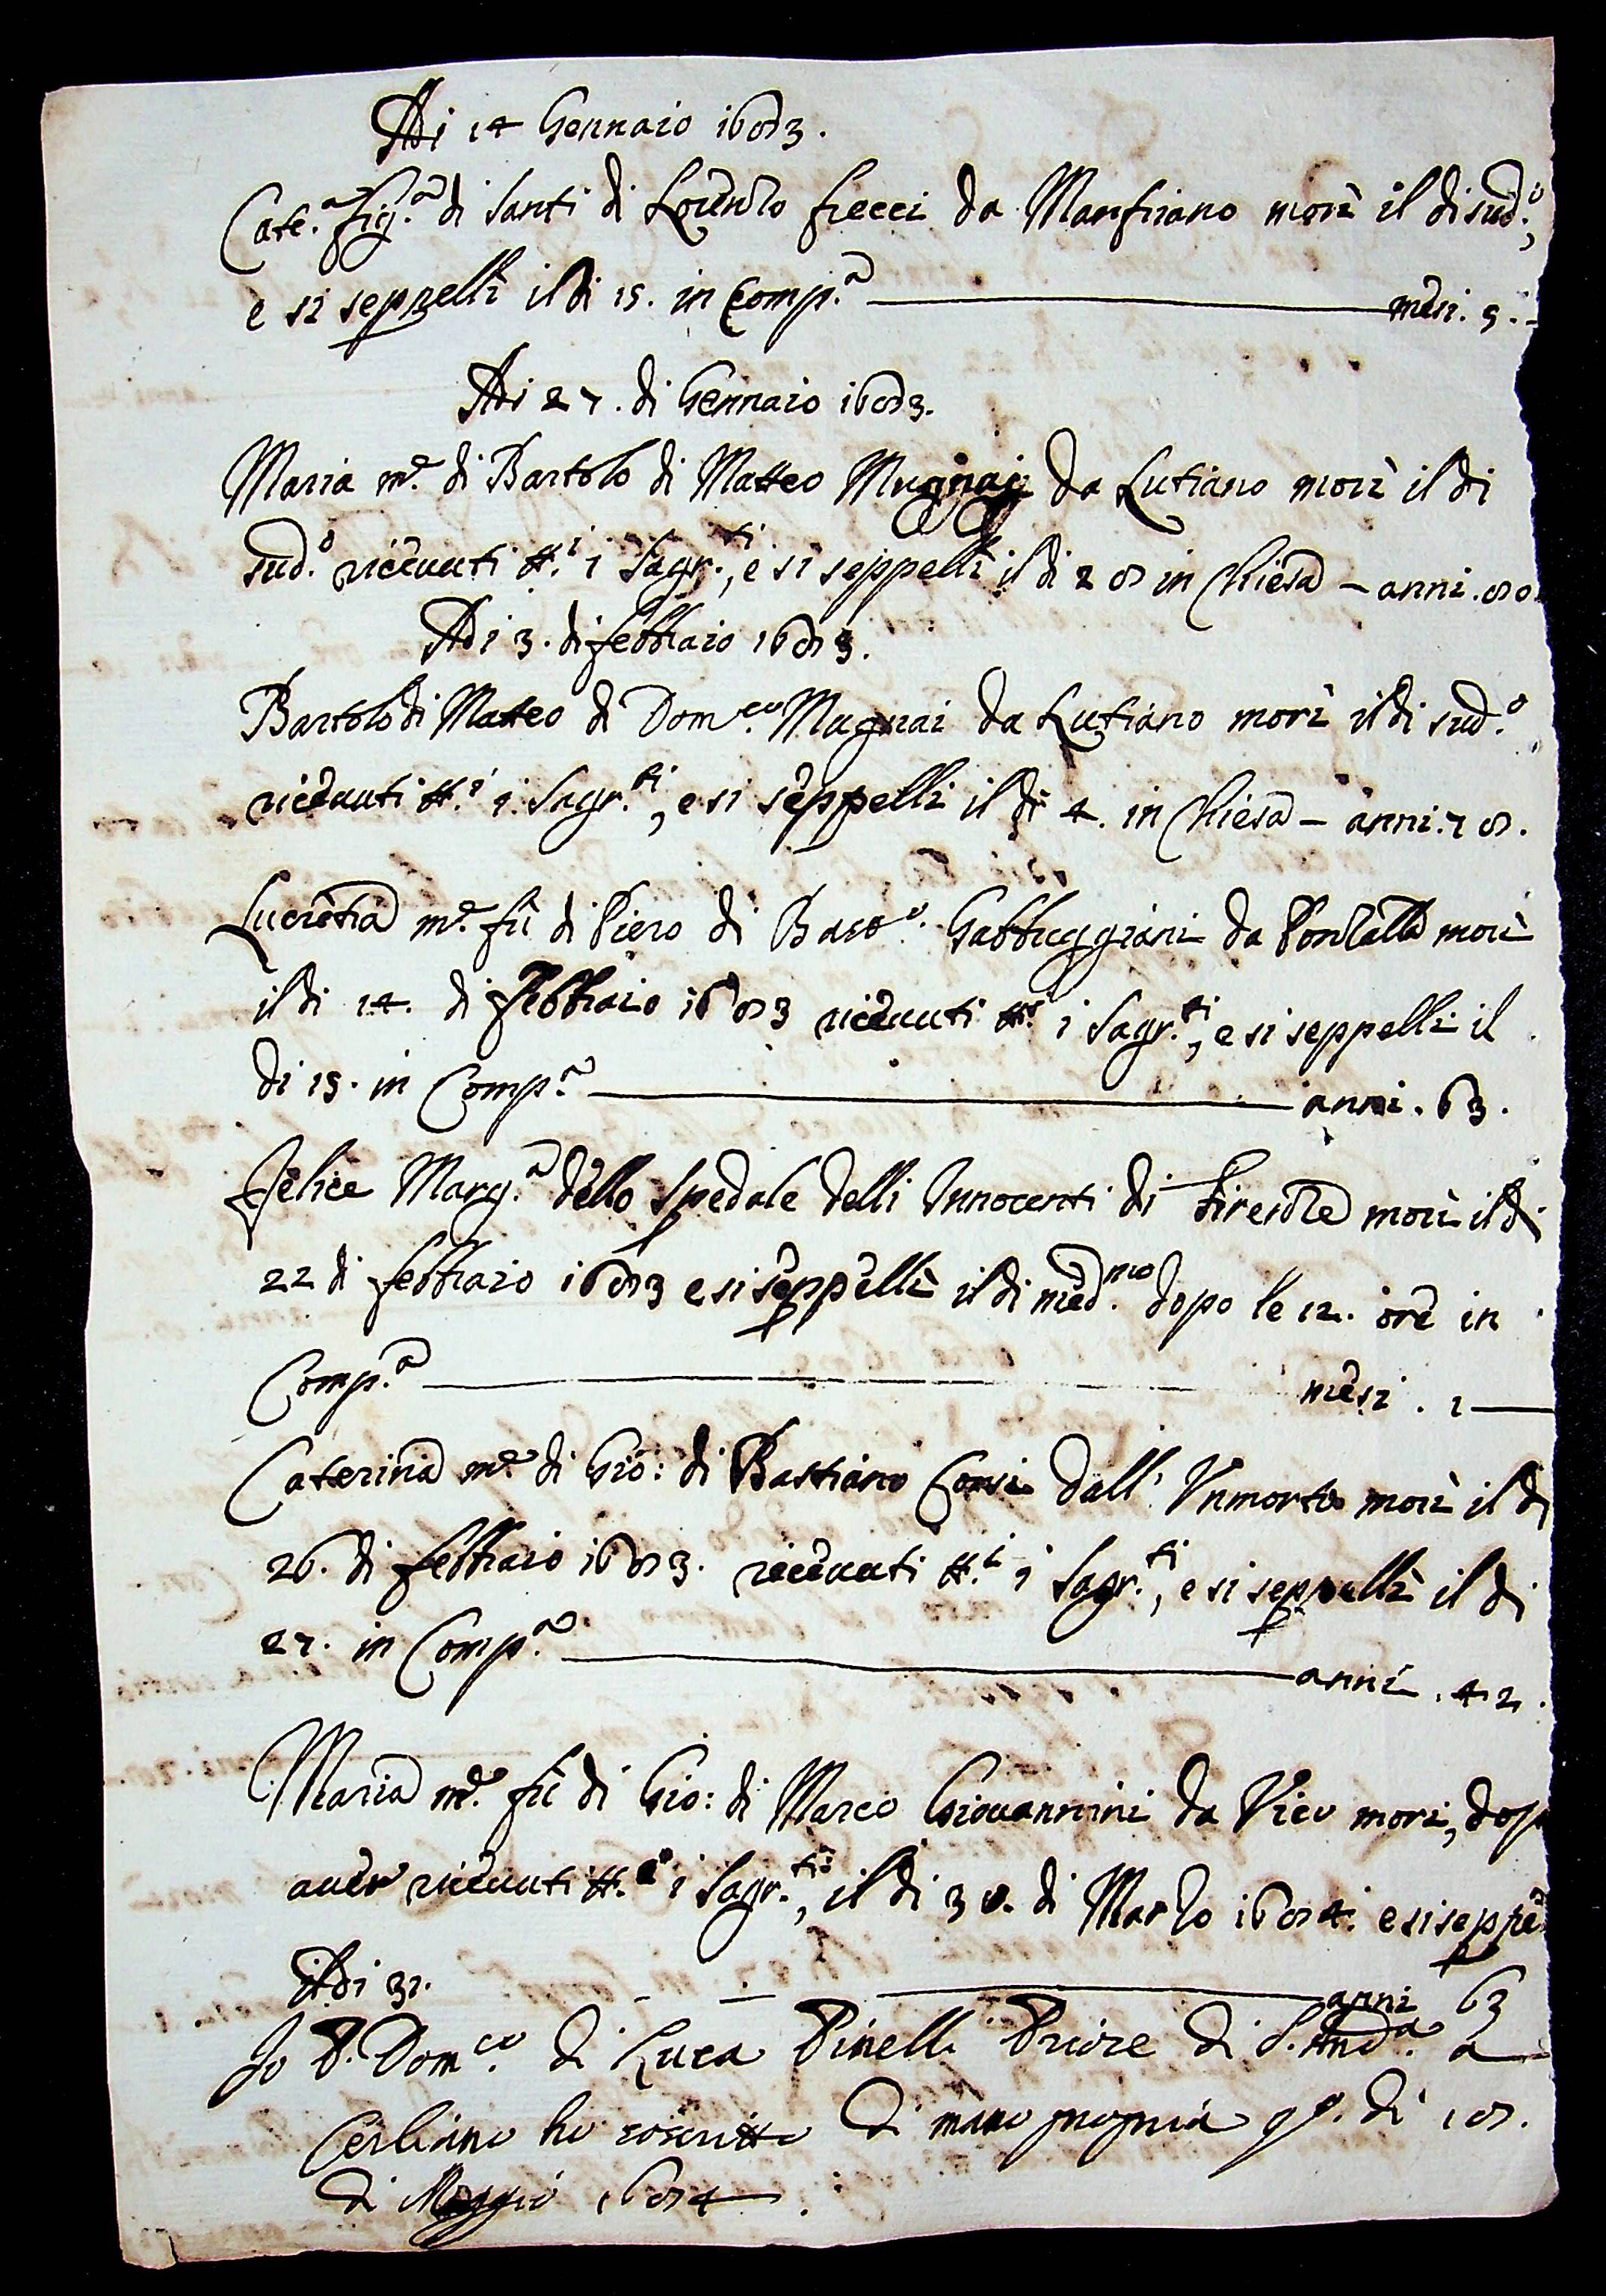 Adi 14 Gennaio 1683.
Cate.ª fig.ª di Santi di Lorenzo Frecci da Marfriano morì il di sud.º,
e si seppellì il di 15. in Comp.ª mesi. 5.
Adi 27. di Gennaio 1683.
Maria m.ᵉ di Bartolo di Matteo Mugnai da Lutiano morì il di
sud.º riceuuti tt.ⁱ i Sagr.ᵗⁱ, e si seppellì il di 28 in Chiesa – anni. 80.
Adi 3. di febbraio 1683.
Bartolo di Matteo di Dom.ᶜᵒ Mugnai da Lutiano morì il di sud.º
riceuuti tt.ⁱ i Sagr.ᵗⁱ, e si seppellì il di 4. in Chiesa – anni. 78.
Lucretia m.ᵉ fù di Piero di Bast.º Gabbuggiani da morì
il di 14. di Febbraio 1683 riceuuti tt.ⁱ i Sagr.ᵗⁱ, e si seppellì il
di 15. in Comp.ª anni. 63.
Felice Marg.ª dello Spedale delli Innocenti di Firenze morì il di
22 di febbraio 1683 e si seppellì il di med.ᵐᵒ dopo le 12. ore in
Comp.ª mesi. 1
Caterina m.ᵉ di Gio: di Bastiano Corsi dall' Vnmorto morì il di
26. di febbraio 1683. riceuuti tt.ⁱ i Sagr.ᵗⁱ, e si seppellì il di
27. in Comp.ª anni. 42.
Maria m.ᵉ fù di Gio: di Marco Giouannini da Vico morì, dop
auer riceuuti tt.ⁱ i Sagr.ᵗⁱ, il di 30. di Marzo 1684. e si seppe
il di 31. anni 63
Io P. Dom.ᶜᵒ di Luca Pinelli Priore di S. And.ª a
Cerliano ho soscritto di mano propria q.º di 18.
di Maggio 1684.